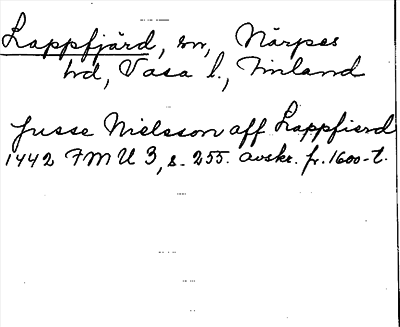 Lappfjärd, sn, Närpes
hd, Vasa l., Finland
Jusse Nielsson aff Lappfierd
1442 FMU 3, s. 255. avskr. fr. 1600-t.